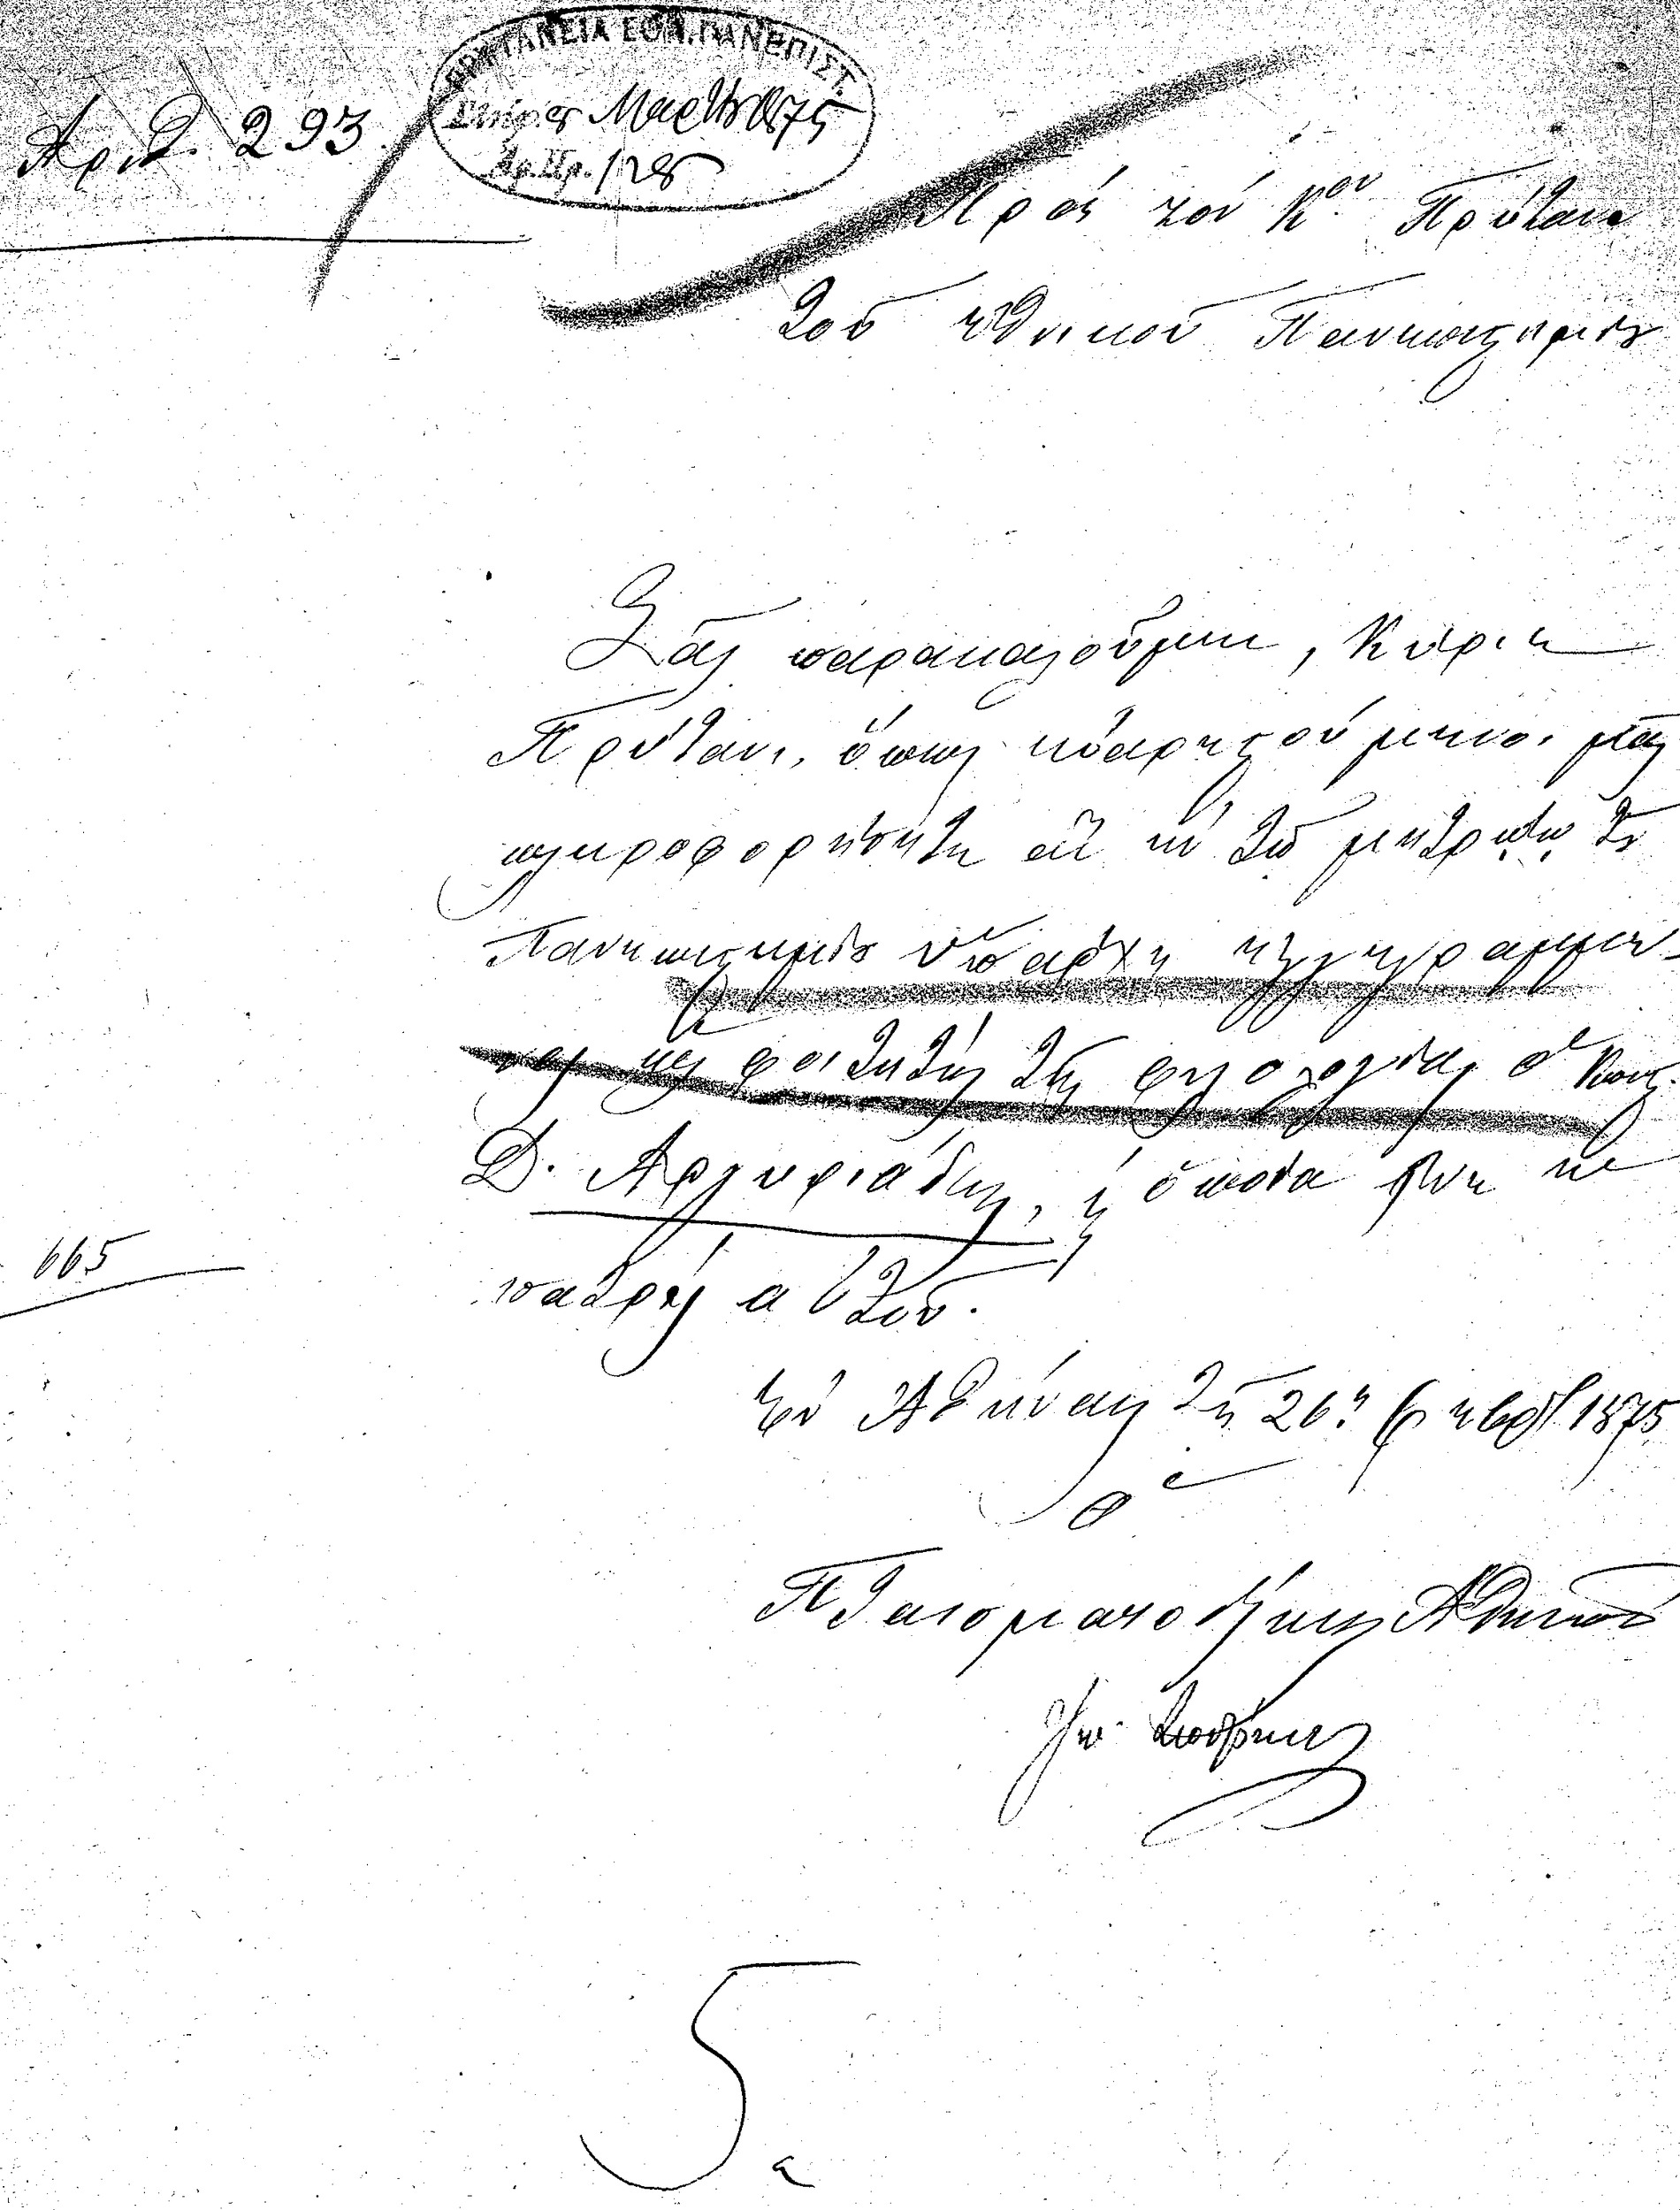 Αριθ. 293
ΠΡΥΤΑΝΕΙΑ ΕΘΝ. ΠΑΝΕΠΙΣΤ.
Μαρτίου 1875
Αρ. Πρ. 128
Πρός τόν Κον Πρύτανι
τοῦ Ἐθνικοῦ Πανεπιστημίου
Σᾶς παρακαλοῦμεν, Κύριε
Πρύτανι, ὅπως εὐαρεστούμενοι μᾶς
πληροφορήσητε ἄν ἐν τῷ μητρώῳ τοῦ
Πανεπιστημίου ὑπάρχῃ ἐγγεγραμμέ-
νος ὡς φοιτητής τῆς φιλολογίας ὁ Κωνς.
Δ. Ἀργυριάδης, ἡ ὁποία
πατρίς αὐτοῦ.
665
Ἐν Ἀθήναις τῇ 26ῃ Φεβρ 1875
Ὁ
Πταισματοδίκης Ἀθηνῶν
5
α